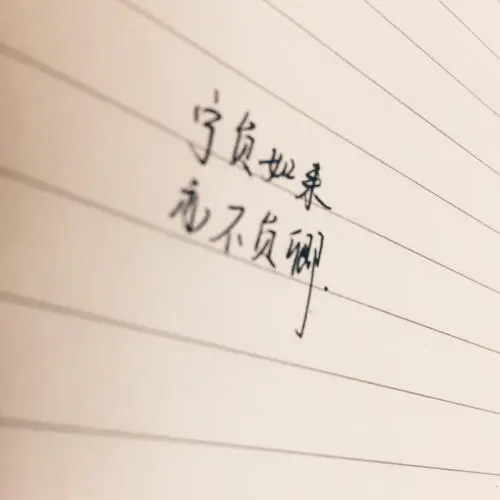 宁负如来
亦不负卿.